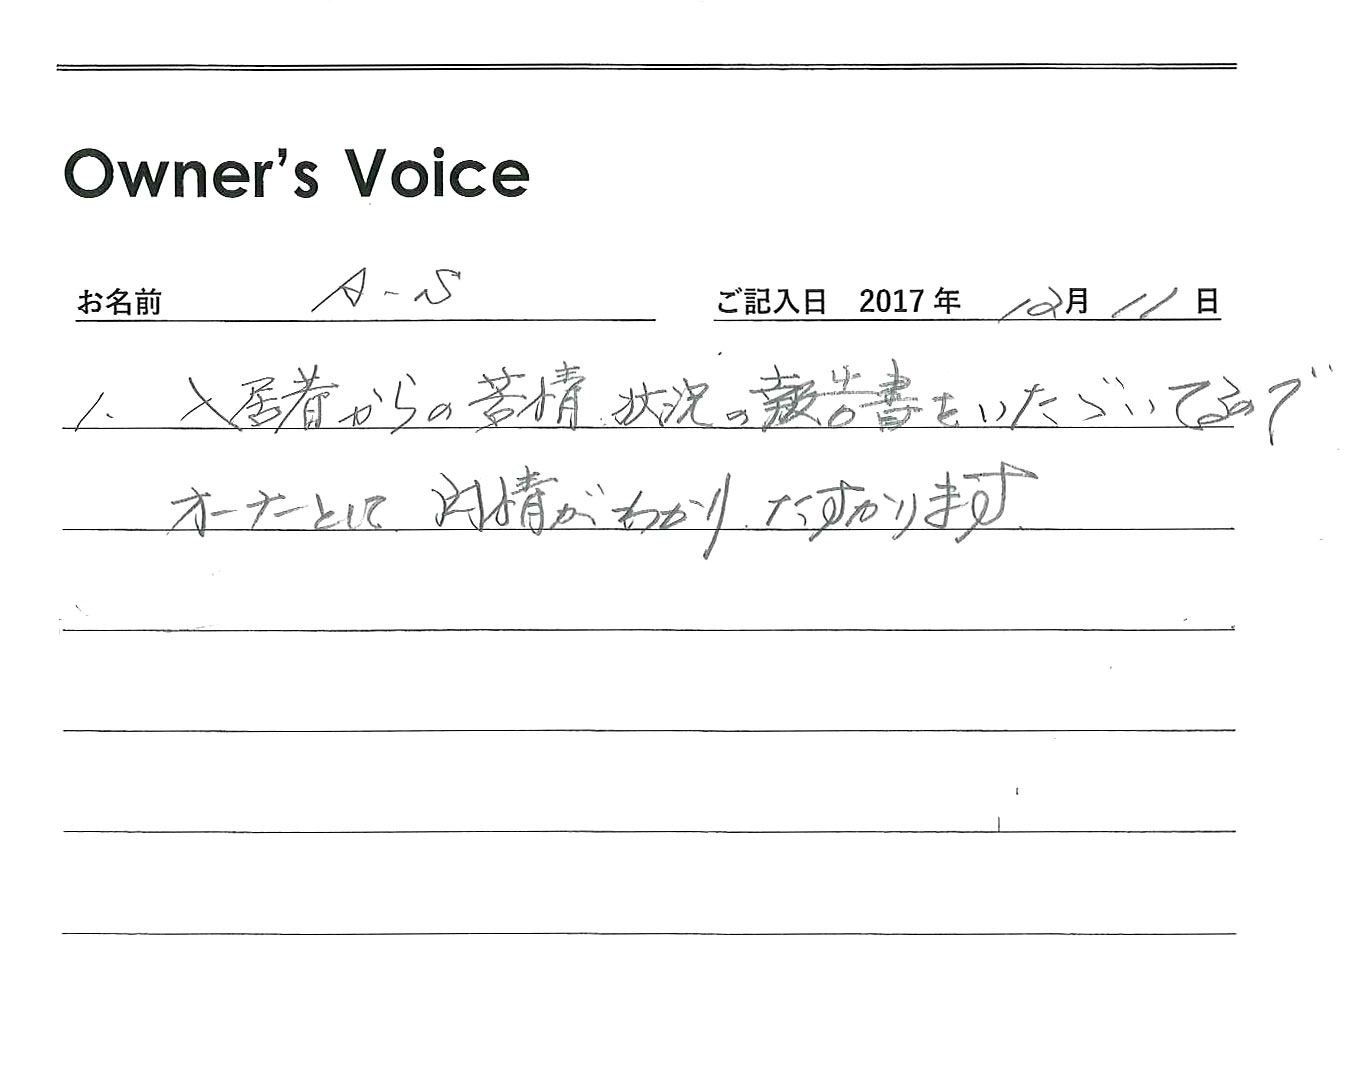 Owner's Voice
お名前 A-S ご記入日 2017年 12月 11日
1. 入居者からの苦情 状況の報告書をいただいてるので
オーナーとして 内情がわかり たすかります